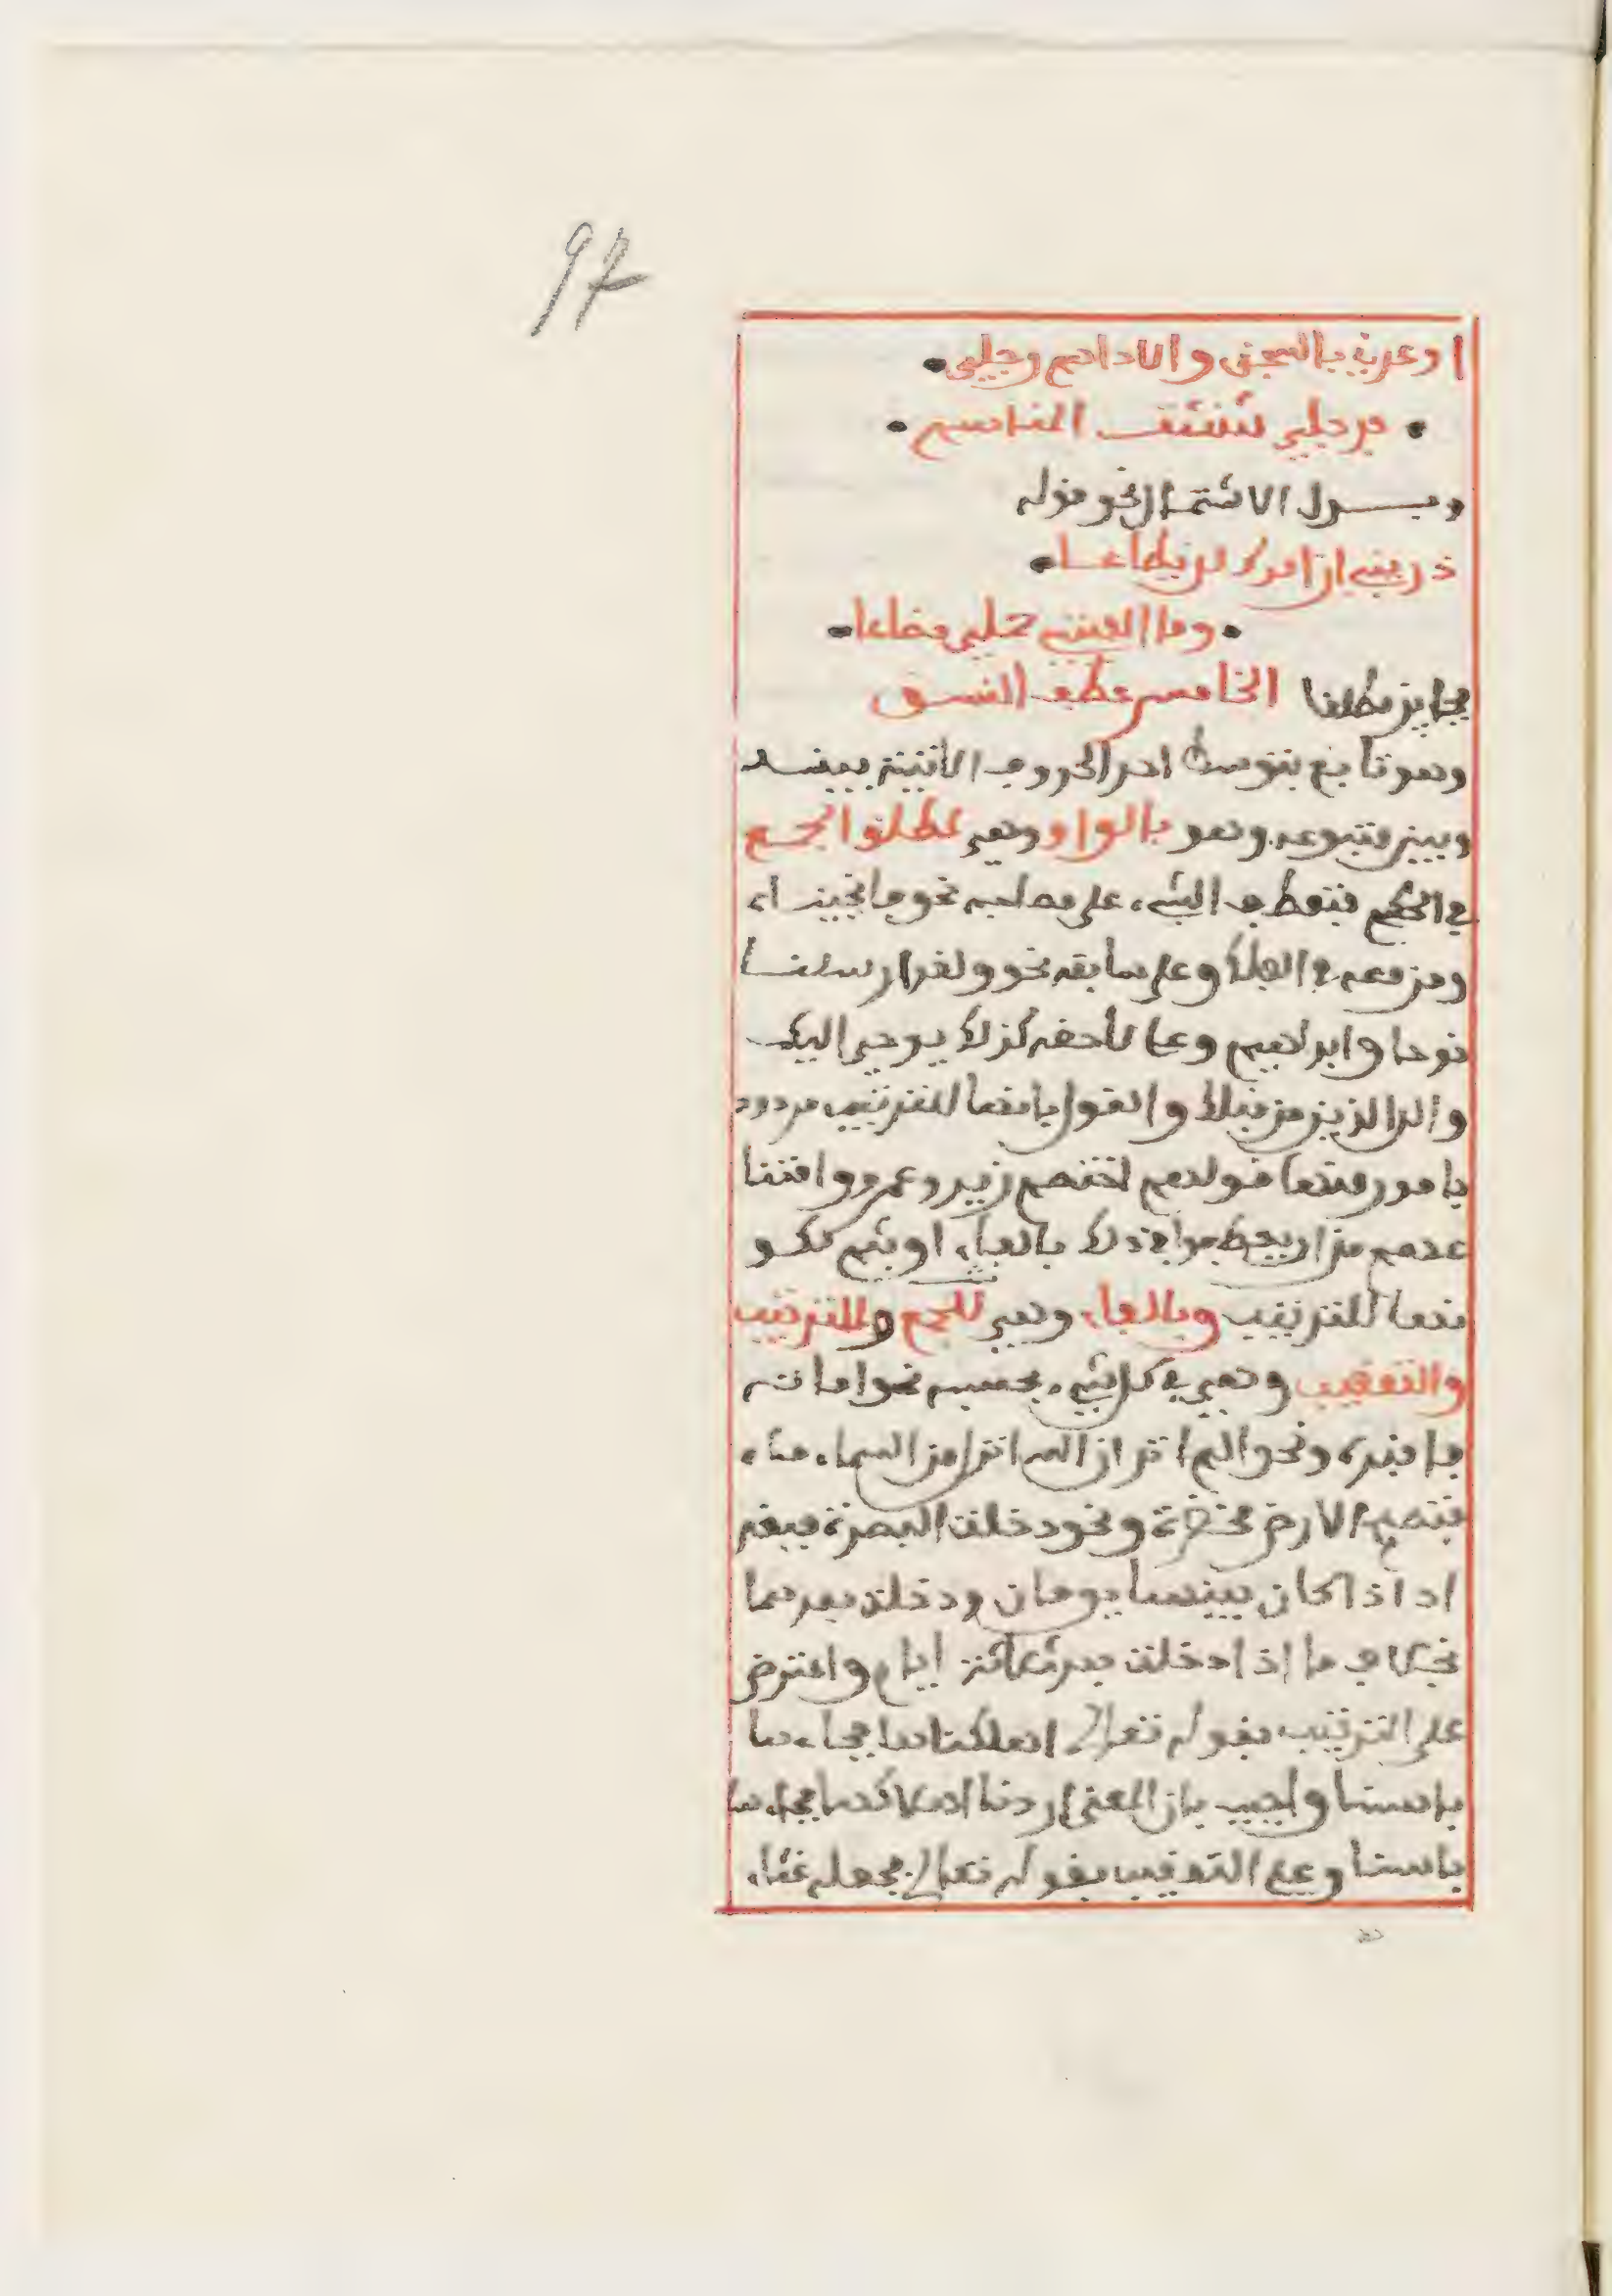 97
اوعدني بالسجن والاداهم رجلي
فرجلي شثنة المناسم
وبدل الاشتمال نحو قوله
ذريني ان امرك لن يطاعا
وما الفيتني حلمي مضاعا
فجايز مطلقا الخامس عطف النسق
وهو تابع يتوسط احد الحروف الاتية بينه
وبين متبوعه وهو بالواو وهي لمطلق الجمع
في الحكم فتعطف الشيء على مصاحبه نحو فانجيناه
ومن معه في الفلك وعلى سابقه نحو ولقد ارسلنا
نوحا وابراهيم وعلى لاحقه كذلك يوحي اليك
والى الذين من قبلك والقول بانها للترتيب مردود
بامور منها قولهم اختصم زيد وعمرو وامتنا
عهم من ان يعطفوا في ذلك بالفاء او بثم لكو
نهما للترتيب وبالفاء وهي للجمع وللترتيب
والتعقيب وهي في كل شيء بحسبه نحو اماته
فاقبره ونحو الم تر ان الله انزل من السماء ماء
فتصبح الارض مخضرة ونحو دخلت البصرة فبغد
اد اذا كان بينهما يومان ودخلت بعدهما
بخلاف ما اذا دخلت بعد ثلاثة ايام واعترض
على الترتيب بقوله تعالى اهلكناها فجاءها
باسنا واجيب بان المعنى اردنا اهلاكها فجاءها
باسنا وعلى التعقيب بقوله تعالى فجعله غثاء